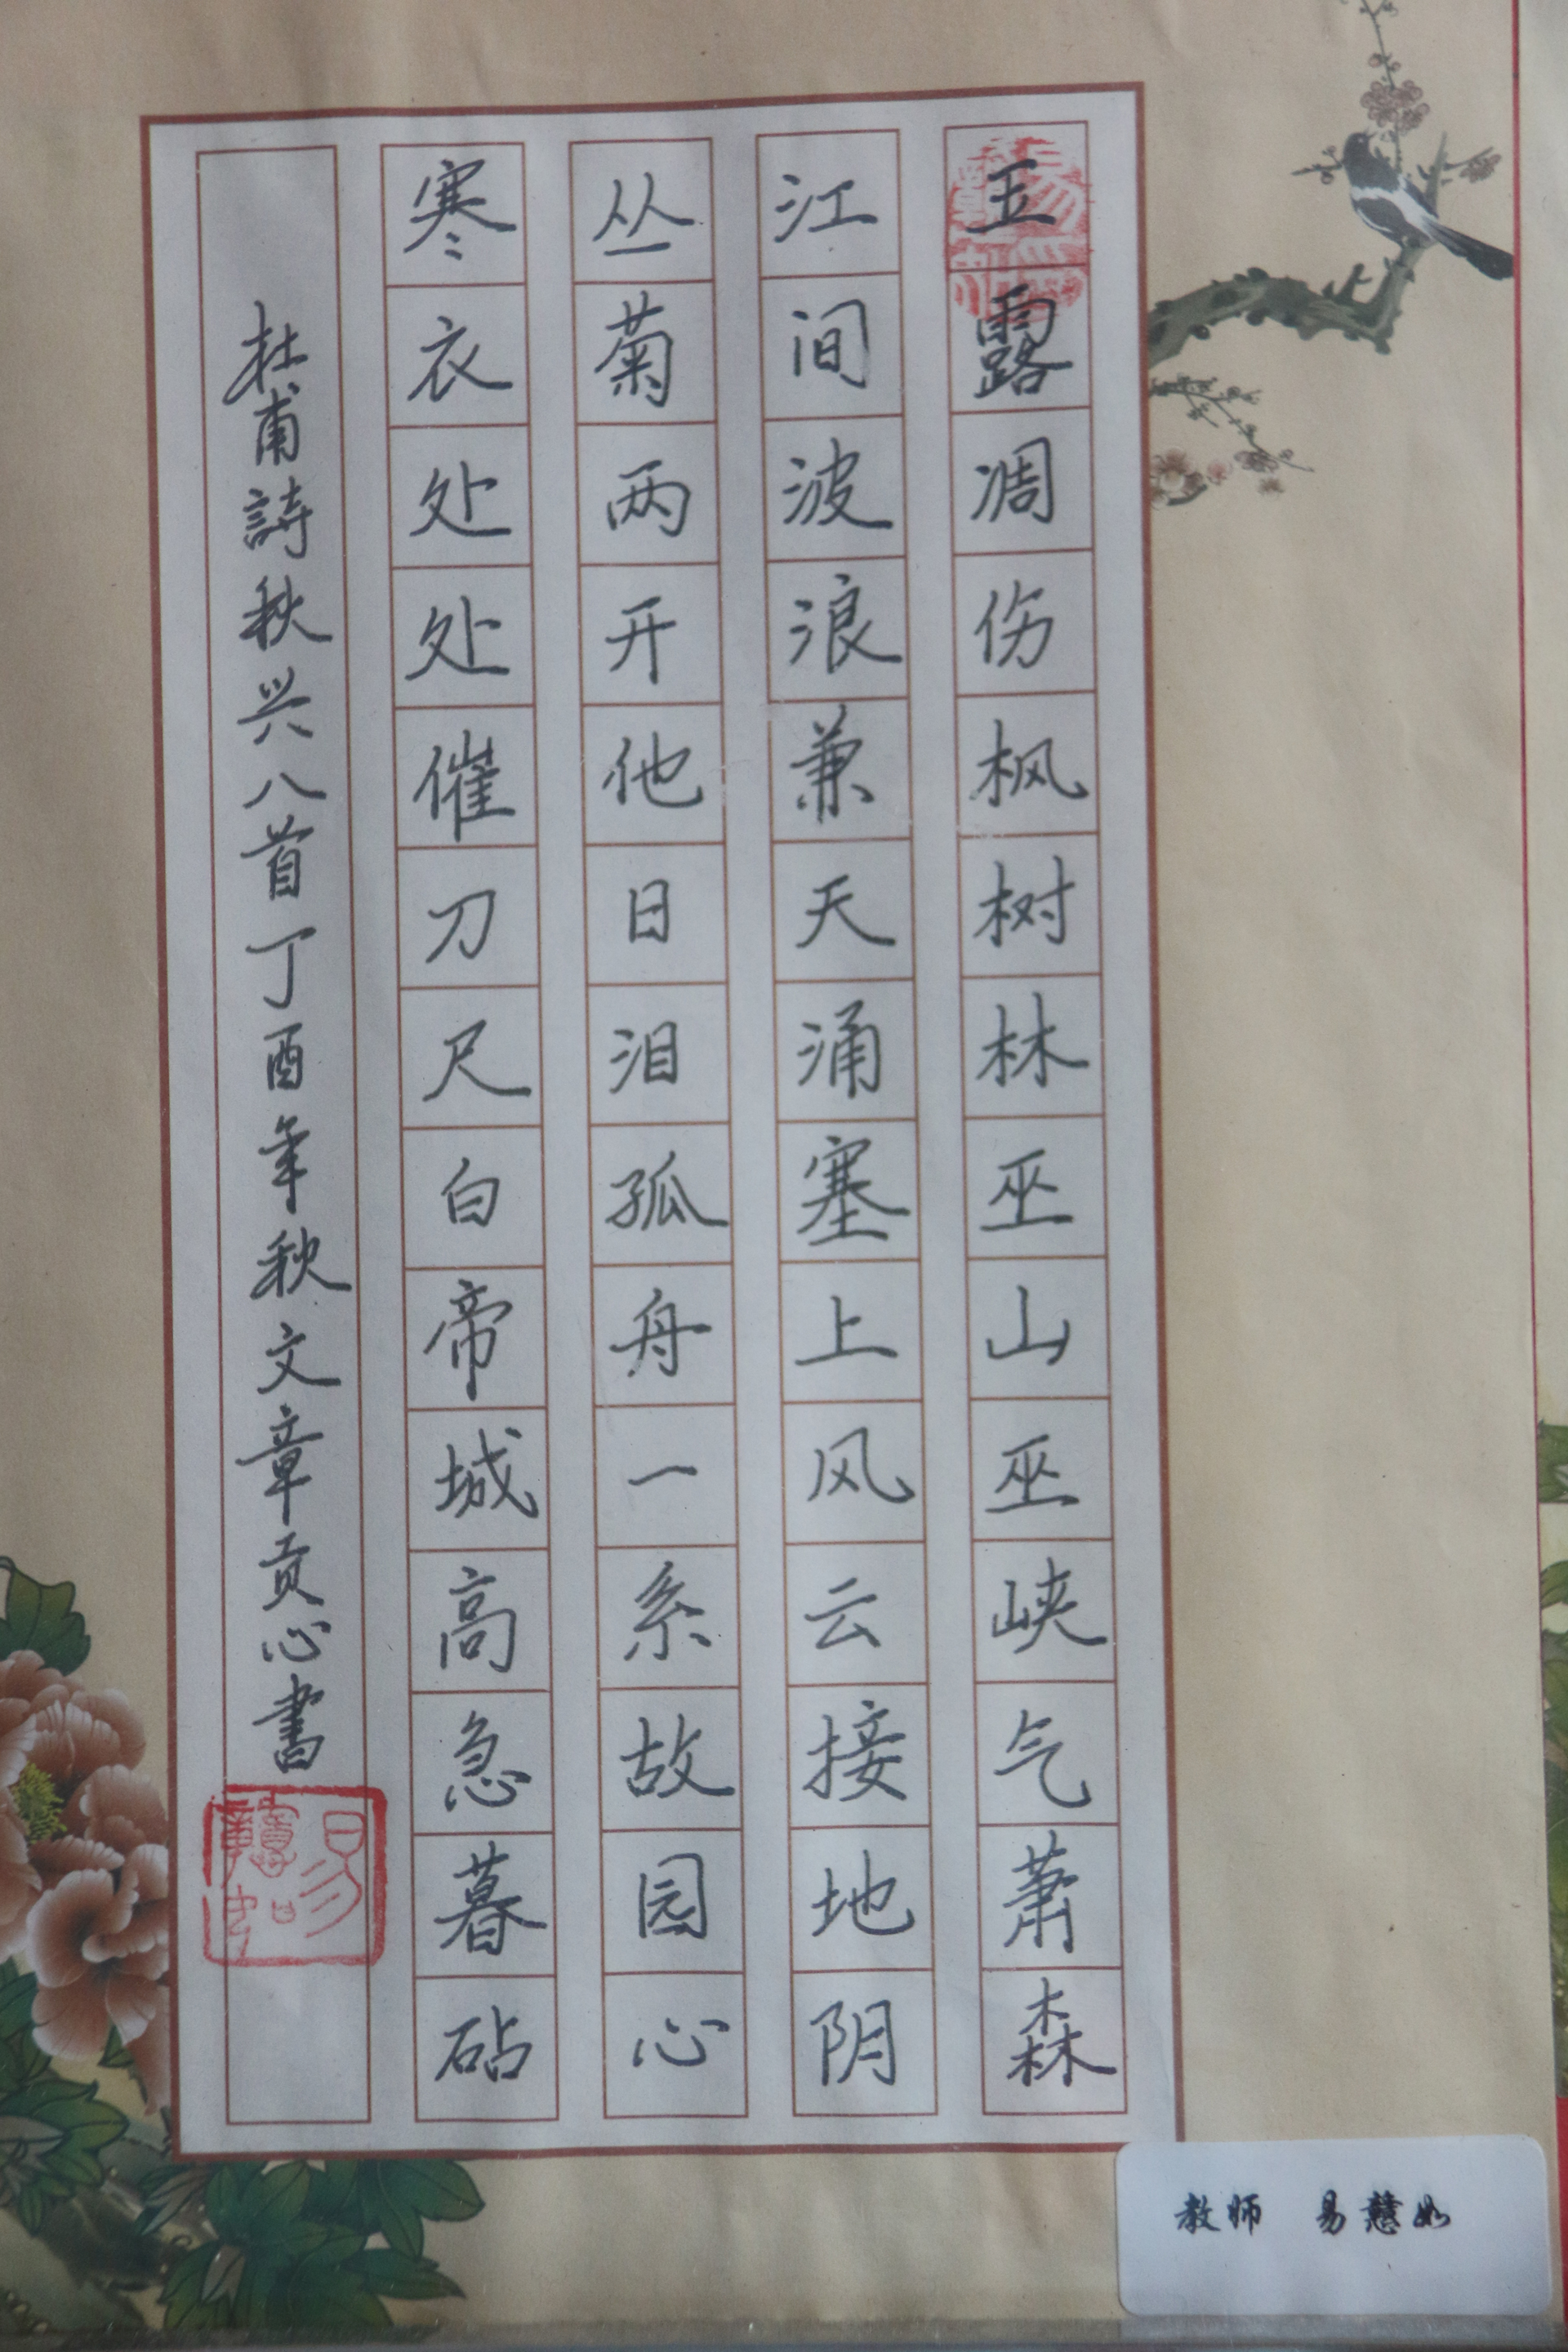 玉露凋伤枫树林巫山巫峡气萧森
江间波浪兼天涌塞上风云接地阴
丛菊两开他日泪孤舟一系故园心
寒衣处处催刀尺白帝城高急暮砧
杜甫詩秋兴八首丁酉年秋文章贡心書
教师 易慧如